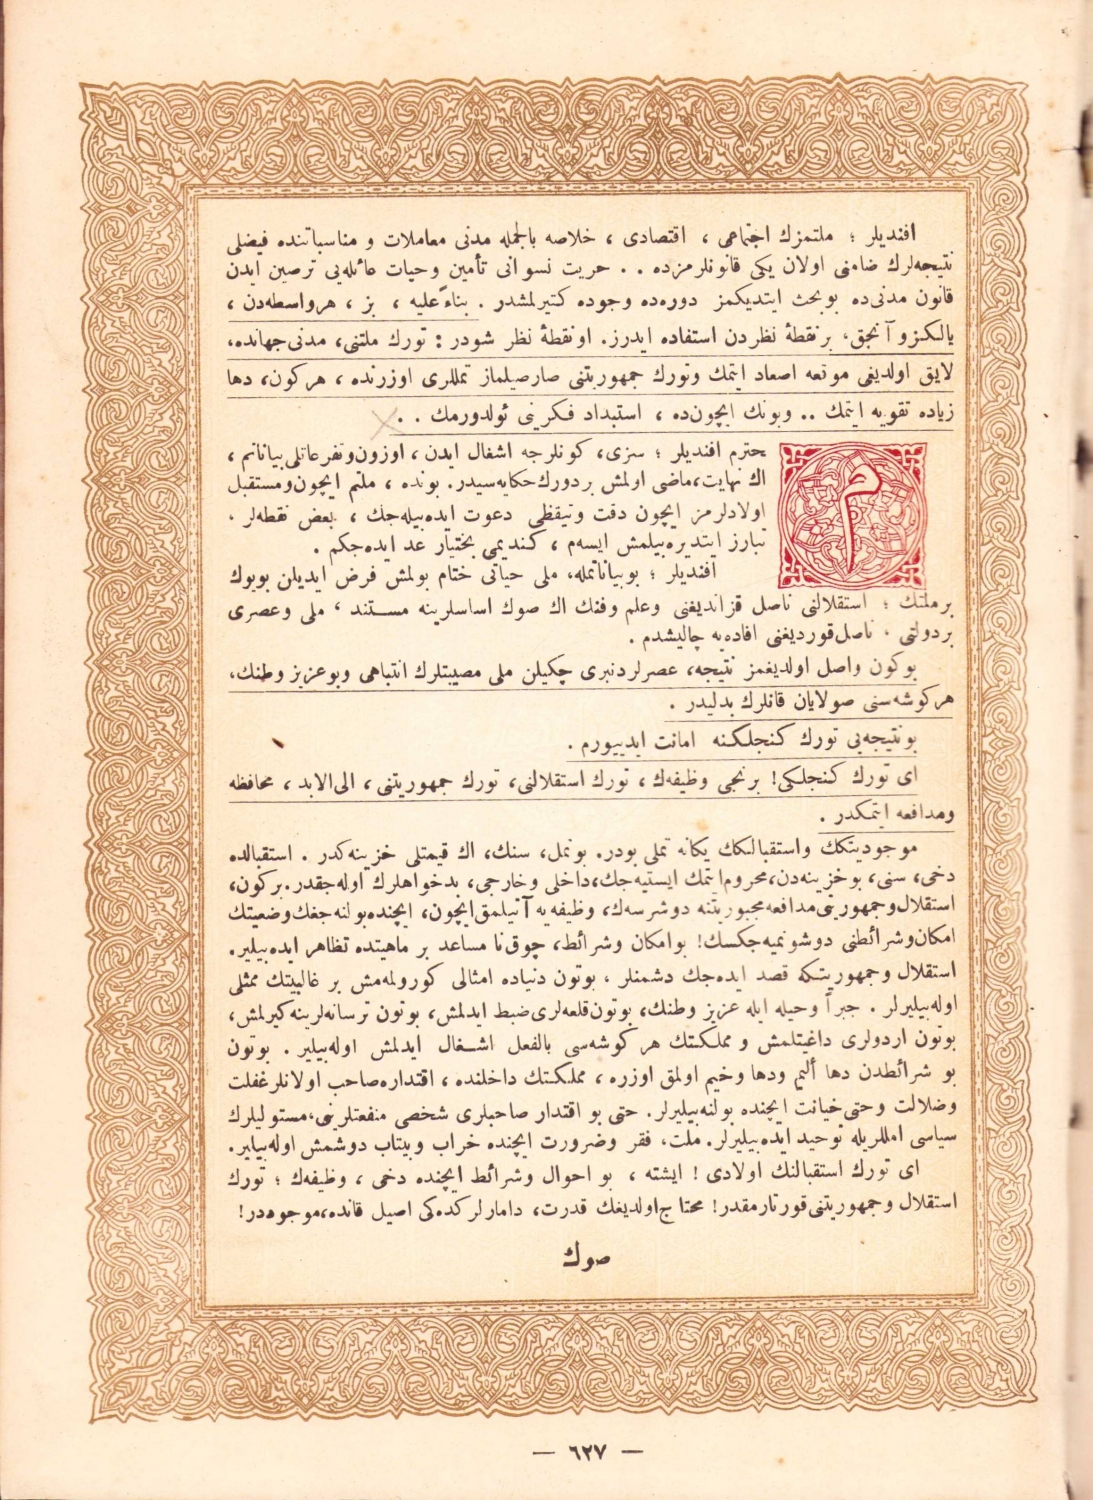 افنديلر ؛ ملتمزك اجتماعى ، اقتصادى ، خلاصه بالجمله مدنى معاملات و مناسباتنده فيضلى
نتيجه‌لرك ضامنى اولان يكى قانونلرمزده . . حريت نسوانى تأمين وحيات عائله‌يى ترصين ايدن
قانون مدنى‌ده بوبحث ايتديكمز دوره‌ده وجوده كتيرلمشدر . بناءً عليه ، بز ، هرواسطه‌دن ،
يالكزو آنجق، برنقطهٔ نظردن استفاده ايدرز. اونقطهٔ نظر شودر : تورك ملتنى، مدنى جهانده،
لايق اولديغى موقعه اصعاد ايتمك وتورك جمهوريتنى صارصيلماز تمللرى اوزرنده ، هركون، دها
زياده تقويه ايتمك .. وبونك ايچون‌ده ، استبداد فكرينى ئولدورمك . .
م
حترم افنديلر ؛ سزى، كونلرجه اشغال ايدن ، اوزون‌وتفرعاتلى‌بياناتم ،
اك نهايت،ماضى اولمش بردورك‌حكايه‌سيدر. بونده ، ملتم ايچون‌ومستقبل
اولادلرمز ايچون دقت وتيقظى دعوت ايده‌بيله‌جك ، بعض نقطه‌لر .
تبارز ايتديره‌بيلمش ايسه‌م ، كنديمى بختيار عد ايده‌جكم .
افنديلر ؛ بوبياناتمله، ملى حياتى ختام بولمش فرض ايديلن بويوك
برملتك ؛ استقلالنى ناصل قزانديغنى وعلم وفنك اك صوك اساسلرينه مستند ، ملى وعصرى
بردولتى . ناصل‌قورديغنى افاده‌يه چاليشدم .
بوكون واصل اولديغمز نتيجه، عصرلردنبرى چكيلن ملى مصيبتلرك انتباهى وبوعزيز وطنك،
هركوشه‌سنى صولايان قانلرك بدليدر .
بونتيجه‌يى تورك كنجلكنه امانت ايدييورم .
اى تورك كنجلكى! برنجى وظيفه‌ك ، تورك استقلالنى، تورك جمهوريتنى ، الى‌الابد ، محافظه
ومدافعه ايتمكدر .
موجوديتكك واستقبالكك يكانه تملى بودر. بوتمل، سنك، اك قيمتلى خزينه‌كدر . استقبالده
دخى، سنى، بوخزينه‌دن،محروم‌ايتمك ايستيه‌جك،داخلى وخارجى، بدخواهلرك اوله‌جقدر.بركون،
استقلال‌وجمهوريتى‌مدافعه‌مجبوريتنه دوشرسه‌ك، وظيفه‌يه آتيلمق‌ايچون، ايچنده‌بولنه‌جغك‌وضعيتك
امكان‌وشرائطنى دوشونميه‌جكسك! بوامكان وشرائط، چوق‌نا مساعد بر ماهيتده تظاهر ايده‌بيلير.
استقلال وجمهوريتكه قصد ايده‌جك دشمنلر ، بوتون دنياده امثالى كورولمه‌مش بر غالبيتك ممثلى
اوله‌بيليرلر . جبراً وحيله ايله عزيز وطنك، بوتون‌قلعه‌لرى‌ضبط ايدلمش، بوتون ترسانه‌لرينه‌كيرلمش،
بوتون اردولرى داغيتلمش و مملكتك هر كوشه‌سى بالفعل اشغال ايدلمش اوله‌بيلير . بوتون
بو شرائطدن دها أليم ودها وخيم اولمق اوزره ، مملكتك داخلنده ، اقتداره‌صاحب اولانلرغفلت
وضلالت وحتى‌خيانت ايچنده بولنه‌بيليرلر. حتى بو اقتدار صاحبلرى شخصى منفعتلرينى،مستوليلرك
سياسى امللريله توحيد ايده‌بيليرلر. ملت، فقر وضرورت ايچنده خراب وبيتاب دوشمش اوله‌بيلير.
اى تورك استقبالنك اولادى ! ايشته ، بو احوال وشرائط ايچنده دخى ، وظيفه‌ك ؛ تورك
استقلال وجمهوريتنى‌قورتارمقدر! محتاج‌اولديغك قدرت، دامارلركده‌كى اصيل قانده،موجوددر!
صوك
— ٦٢٧ —